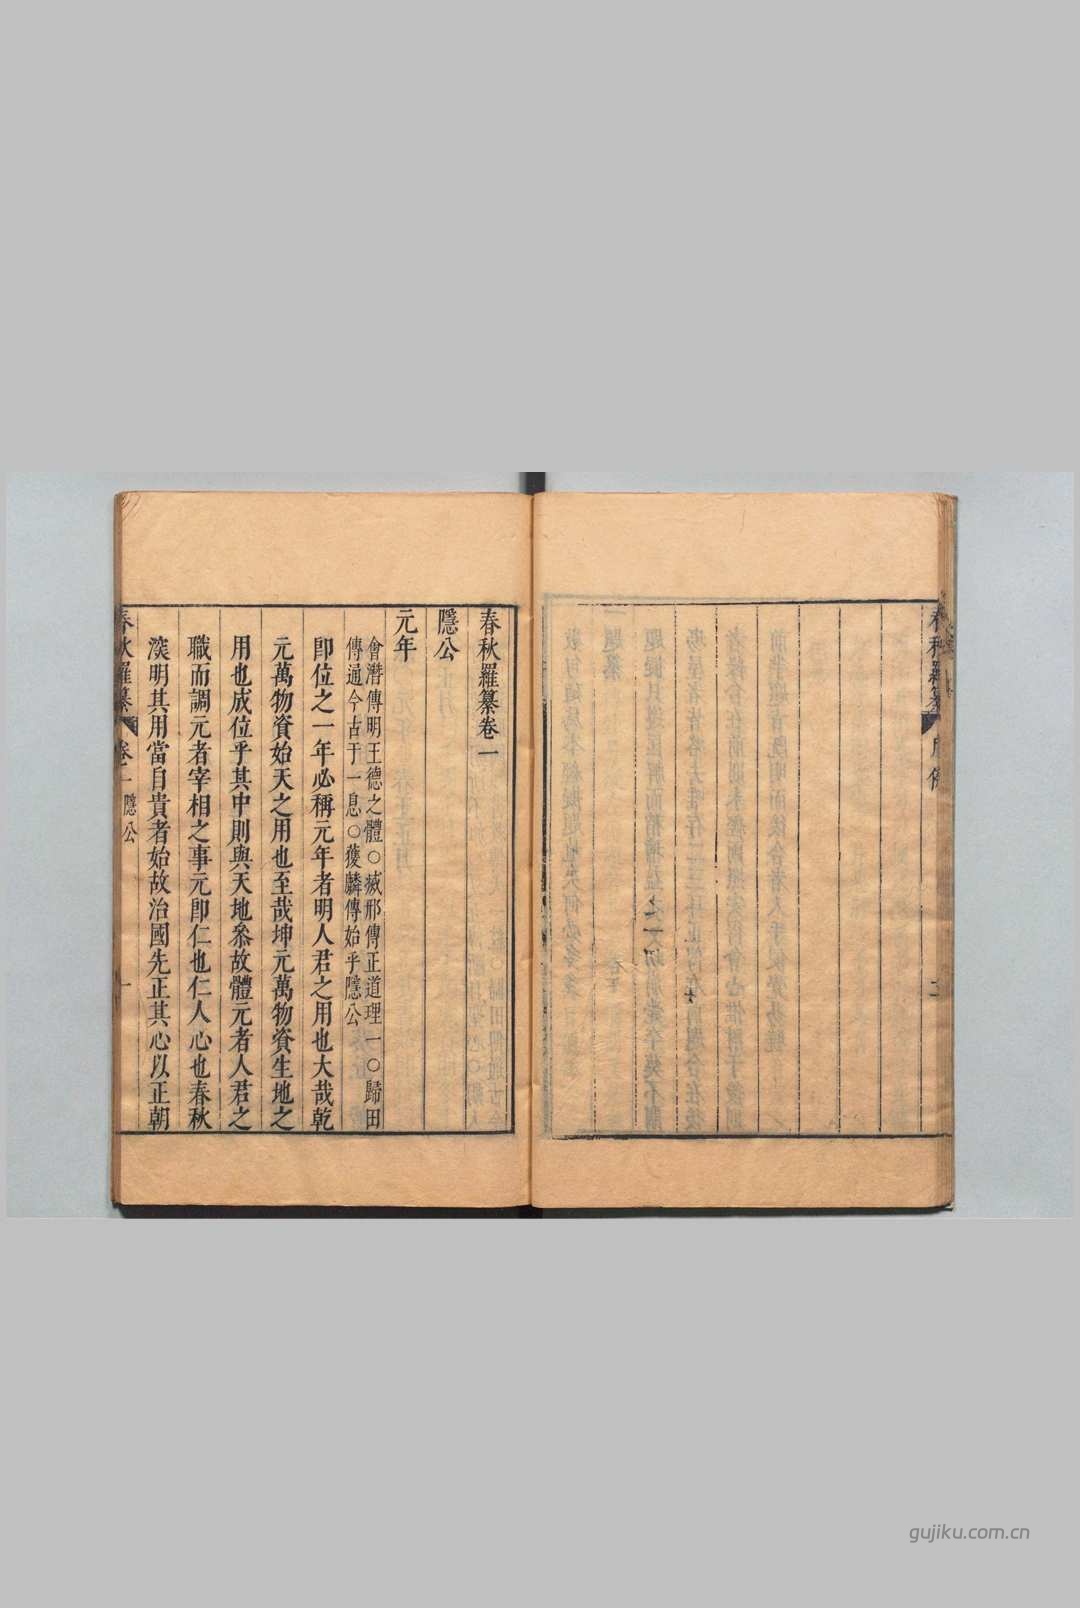 春秋羅纂卷一
隱公
元年
會潛傳明王德之體○蔽邢傳正道理一○歸田
傳通今古于一息○獲麟傳始乎隱公
卽位之一年必稱元年者明人君之用也大哉乾
元萬物資始天之用也至哉坤元萬物資生地之
用也成位乎其中則與天地叅故體元者人君之
職而調元者宰相之事元卽仁也仁人心也春秋
深明其用當自貴者始故治國先正其心以正朝
春秋羅纂 卷一 隱公 一
春秋羅纂
二
gujiku.com.cn